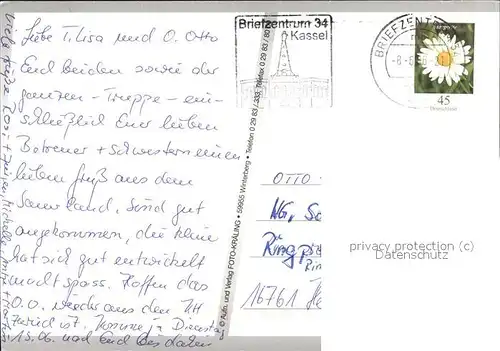 Liebe T. Lisa und O. Otto
Euch beiden sowie der
ganzen - Truppe - ein-
schließlich Euer lieben
Betreuer + Schwestern einen
lieben Gruß aus dem
Sauerland, sind gut
angekommen, die kleine
hat sich gut entwickelt
macht spass. Hoffen das
O.O. wieder aus dem KH
zurück ist. Komme ja Dienst.
13.06. und Euch bis dahin
viele Grüße Rosi +
Briefzentrum 34
Kassel
BRIEFZENT
45
Deutschland
© Aufn. und Verlag FOTO-KRÄLING • 59955 Winterberg • Telefon 0 29 83 / 333, Telefax 0 29 83 / 80
OTTO
Ring
16761 He
privacy protection (c)
Datenschutz